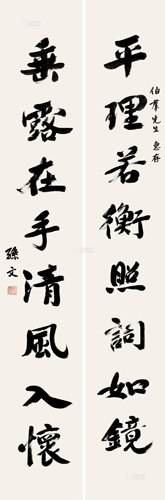 伯羣先生 惠存
平理若衡照詞如鏡
垂露在手清風入懷
孫文